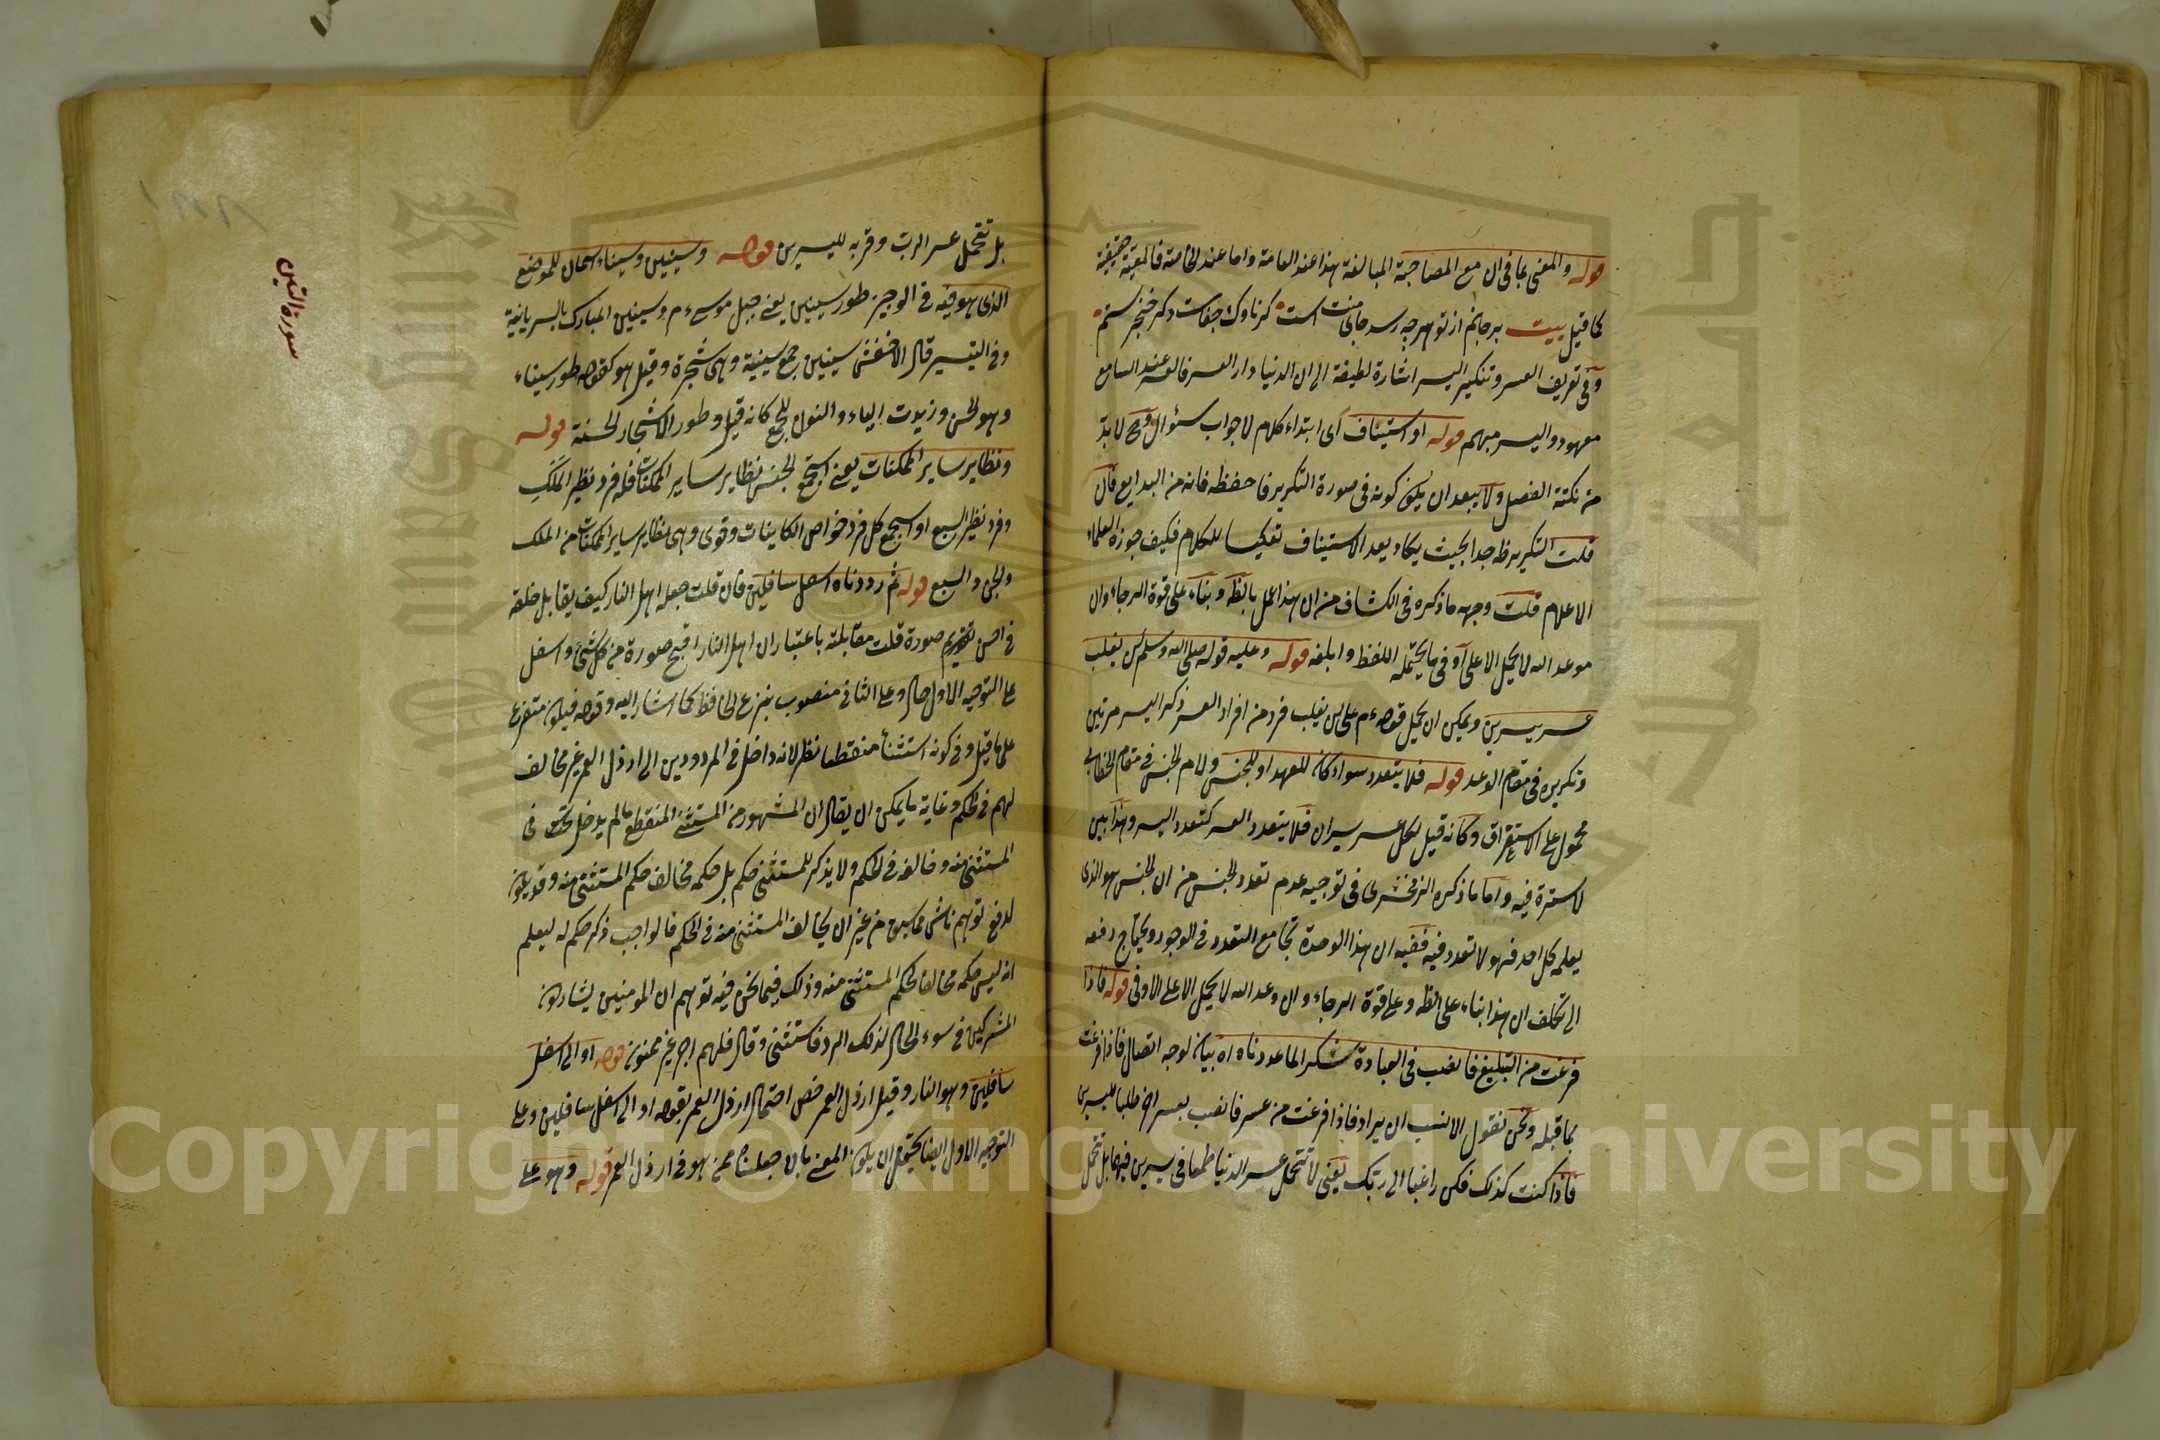 قوله والمعنى بما فى ان مع المصاحبة المبالغة هذا عند العامة واما عند الخاصة فالمعية حقيقية
كما قيل بيت بر جانم از تو هرچه رسد جاى منت است كر ناوك جفاست وكر خنجر ستم
وفى تعريف العسر وتنكير اليسر اشارة لطيفة الى ان الدنيا دار العسر فالعسر عند السامع
معهود واليسر مبهم قوله او استيناف اى ابتداء كلام لا جواب سؤال وح لا بد
من نكتة الفصل ولا يبعد ان يكون كونه فى صورة التكرير فاحفظه فانه من البدايع فان
قلت التكرير ظ جدا بحيث يكاد يعد الاستيناف تعكيسا للكلام فكيف جوزه العلماء
الاعلام قلت وجهه ما ذكره فى الكشاف من ان هذا عمل بالظ وبناء على قوة الرجاء وان
موعد الله لا يحمل الا على اوفى ما يحتمله اللفظ وابلغه قوله وعليه قوله صلى الله وسلم لن يغلب
عسر يسرين ويمكن ان يحمل قوله عم على لن يغلب فرد من افراد العسر ذكر اليسر مرتين
وتكريره فى مقام الوعد قوله فلا يتعدد سواء كان للعهد او للجنس ولام الجنس فى مقام الخطابى
محمول على الاستغراق وكانه قيل لكل عسر يسران فلا يتعدد العسر كتعدد اليسر وهذا بين
لا سترة فيه واما ما ذكره الزمخشرى فى توجيه عدم تعدد الجنس من ان الجنس هو الذى
يعلمه كل احد فهو لا تعدد فيه ففيه ان هذا الوحدة تجامع التعدد فى الوجود ويحتاج دفعه
الى تكلف ان هذا بناء على الظ وعلى قوة الرجاء وان وعد الله لا يحمل الا على الاوفى قوله فاذا
فرغت من التبليغ فانصب فى العبادة شكرا لما عددناه اه بيان لوجه اتصال فاذا فرغت
بما قبله ونحن نقول الانسب ان يراد فاذا فرغت من عسر فانصب بعسر اخر طلبا لليسرين
فاذا كنت كذلك فكن راغبا الى ربك يعنى لا تتحمل عسر الدنيا طمعا فى يسرين فيها بل تحمل
بل تتحمل عسر الرب وقربه لليسرين قوله وسينين وسيناء اسمان للموضع
الذى هو فيه فى الوجيز طور سينين يعنى جبل موسى عم وسينين المبارك بالسريانية
وفى التيسير قال الاخفش سينين جمع سينية وهى شجرة وقيل هو كقوله طور سيناء
وهو الحسن وزيدت الياء والنون للجمع كانه قيل وطور الاشجار الحسنة قوله
ونظاير ساير الممكنات يعنى استجمع الجنس نظاير ساير الممكنات فله فرد نظير الملك
وفرد نظير السبع او استجمع كل فرد خواص الكاينات وقوى وهى نظاير ساير الممكنات من الملك
والجن والسبع قوله ثم رددناه اسفل سافلين فان قلت جعله اهل النار كيف يقابل خلقه
فى احسن تقويم صورة قلت مقابلته باعتبار ان اهل النار اقبح صورة من كل شئ واسفل
على التوجيه الاول حال وعلى الثانى منصوب بنزع الخافظ كما اشار اليه وقوله فيكون متفرع
على ما قيل وفى كونه استثناء منقطعا نظر لانه داخل فى المردودين الى ارذل العمر غير مخالف
لهم فى الحكم وغاية ما يمكن ان يقال ان المشهور من المستثنى المنقطع ما لم يدخل تحت فى
المستثنى منه وخالفه فى الحكم ولا يذكر للمستثنى حكم بل حكمه مخالف حكم المستثنى منه وقد يكون
لدفع توهم ناشئ مما سبق من غير ان يخالف المستثنى منه فى الحكم فالواجب ذكر حكم له ليعلم
انه ليس حكمه مخالف لحكم المستثنى منه وذلك فيما نحن فيه توهم ان المومنين يشاركون
المشركين فى سوء الحال لذلك الرد فاستثنى وقال فلهم اجر غير ممنون قوله او الى اسفل
سافلين وهو النار وقيل ارذل العمر خص احتمال ارذل العمر بقوله او الى اسفل سافلين وعلى
التوجيه الاول ايضا يحتمل ان يكون المعنى بان جعلناه ممن هو فى ارذل العمر قوله وهو على
سورة التين